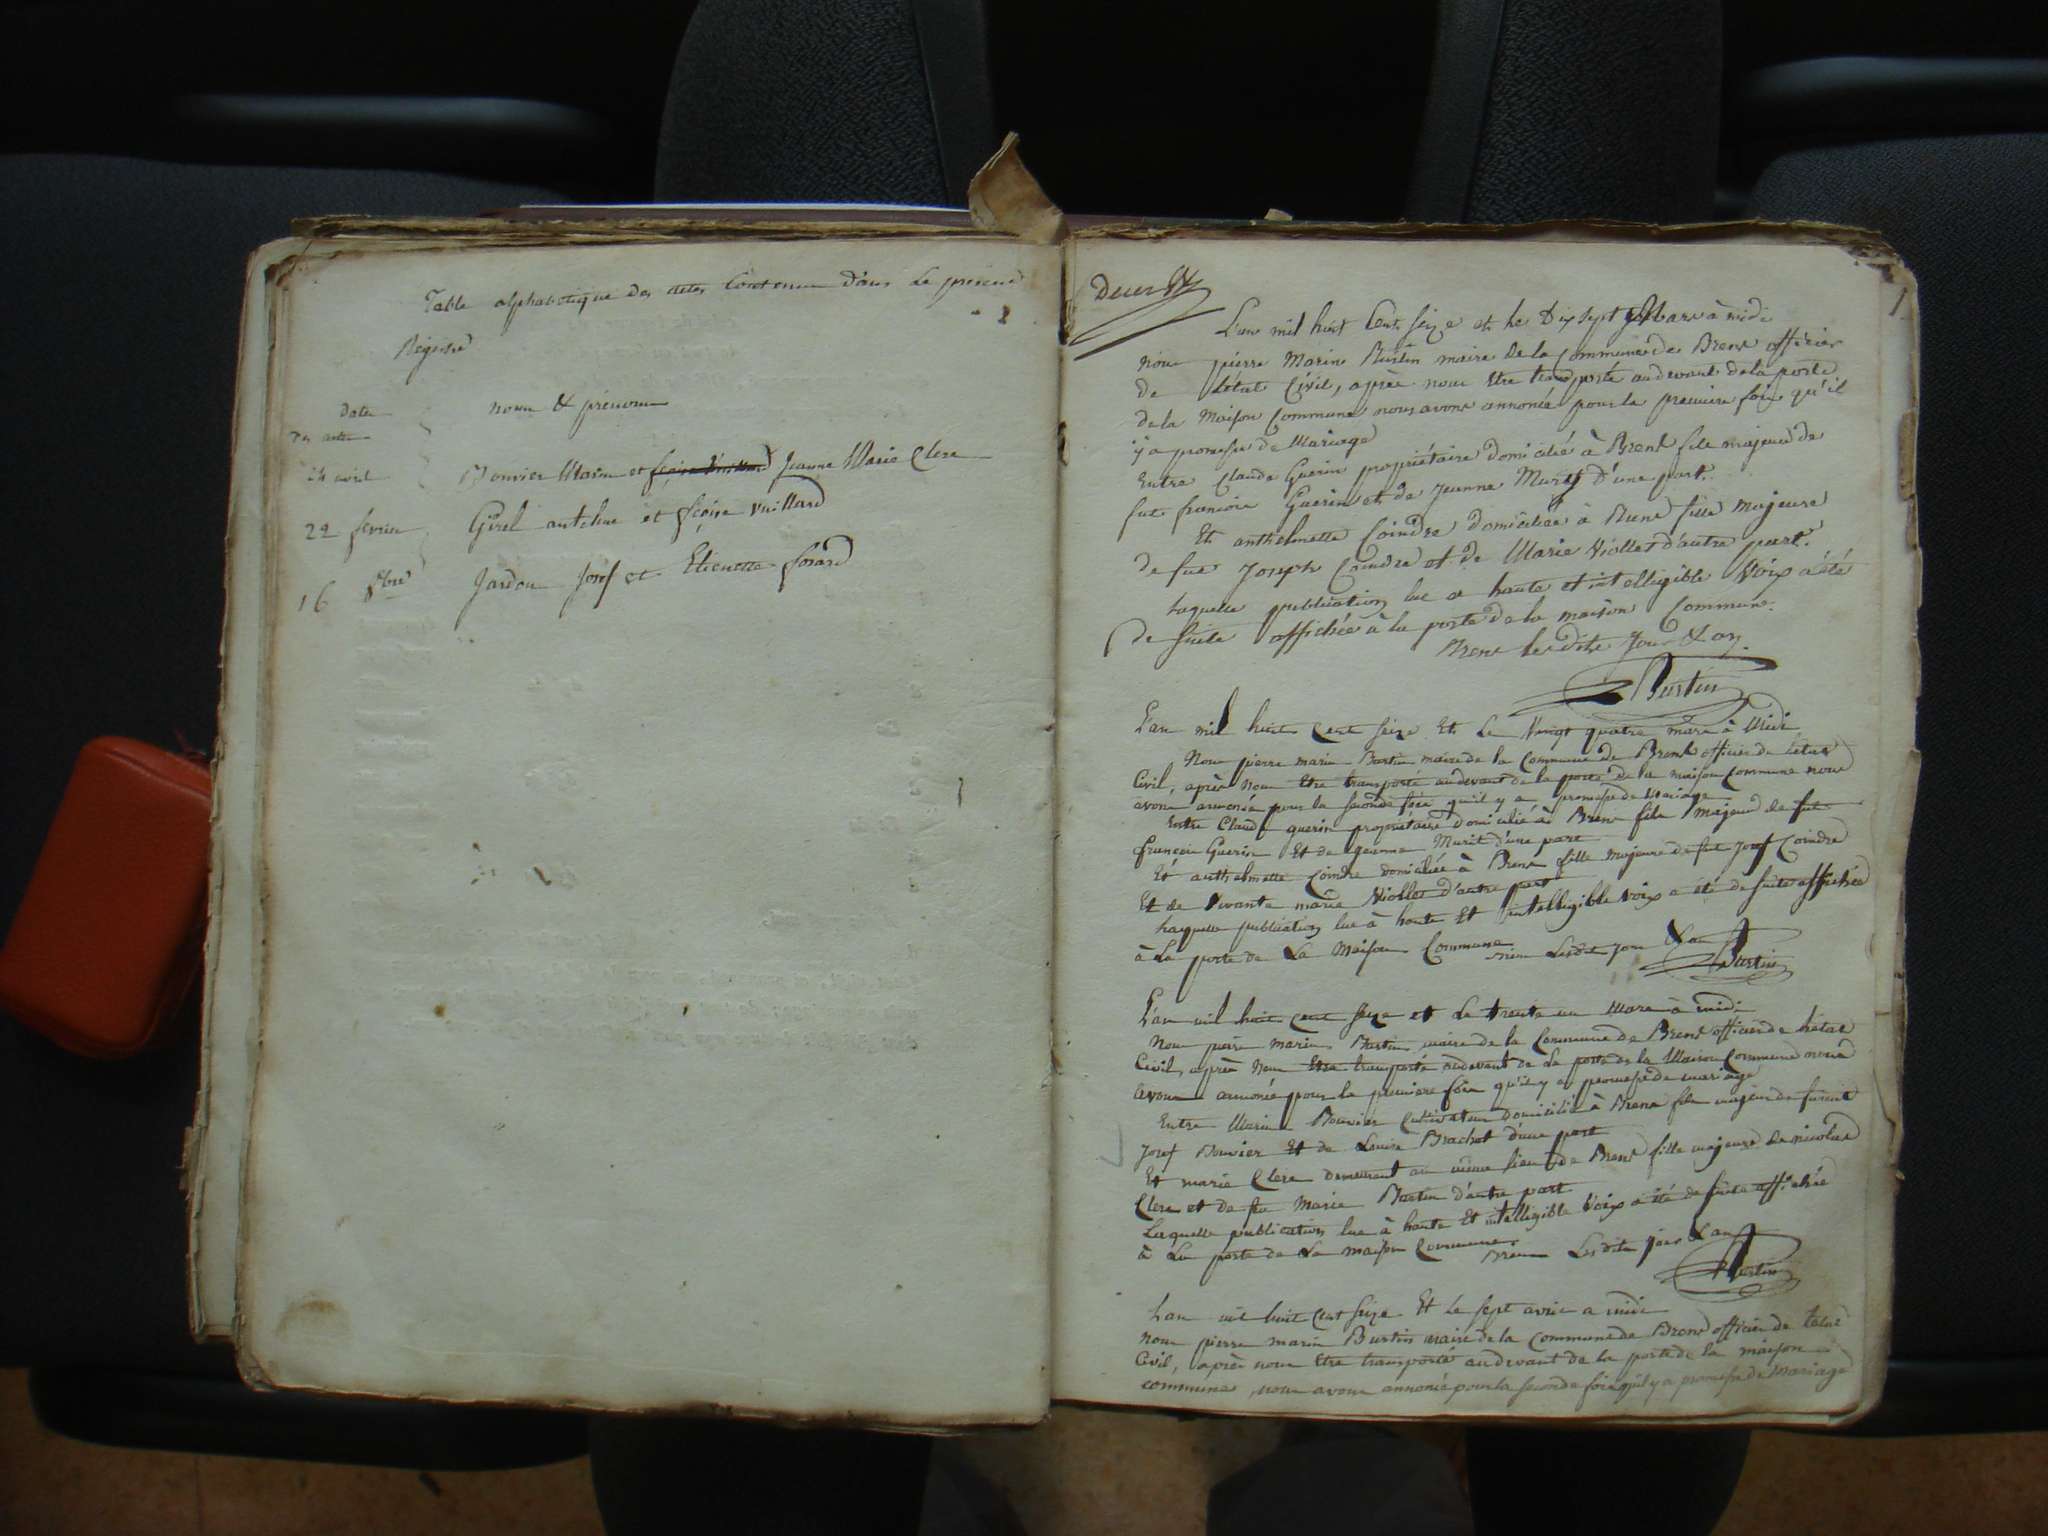 Table alphabetique des actes Contenu dans le présent
Régistre
date
des actes
noms & prénoms
24 avril Bouvier Marin et fçoise Vuillard Jeanne Marie Clerc
22 fevrier Girel antelme et fçoise Vuillard
16 8bre Jardon Josef et Etienette forard
1
L'an mil huit Cent Seize et le Dix sept Mars à midi
nous pierre Marin Burtin maire de la Commune de Brens officier
de l'état Civil, après nous Etre transporté au devant de la porte
de la Maison Commune nous avons annoncé pour la premiere fois qu'il
y a promesse de Mariage
Entre Claude Guerin propriétaire domicilié à Brens fils majeur de
fut francois Guerin et de Jeanne Murit D'une part.
Et anthelmette Coindre domiciliée à Brens fille majeure
de fut Joseph Coindre et de Marie Viollet d'autre part.
Laquelle publication lue a haute et intelligible Voix a été
de suite affichée à la porte de la maison Commune.
Brens les dits Jour & an.
Burtin
L'an mil huit Cent Seize Et Le Vingt quatre mars à Midi
Nous pierre marin Burtin maire de la Commune de Brens officier de l'état
Civil, après nous Etre transporté au devant de la porte de la maison Commune nous
avons annoncé pour la seconde fois qu'il y a promesse de Mariage
Entre Claude guerin propriétaire domicilié à Brens fils majeur de fut
françois Guerin Et de Jeanne Murit d'une part
Et anthelmette Coindre domiciliée à Brens fille majeure de fut Josef Coindre
Et de Vivante marie Viollet d'autre part
Laquelle publication lue à haute Et intelligible Voix a été de suite affichée
à La porte de La Maison Commune Brens Lesdits jour & an
Burtin
L'an mil huit Cent Seize et Le trente un Mars à midi
Nous pierre marin Burtin maire de la Commune de Brens officier de l'état
Civil, après Nous Etre transporté au devant de La porte de la Maison Commune nous
avons annoncé pour la premiere fois qu'il y a promesse de mariage
Entre Marin Bouvier Cultivateur domicilié à Brens fils majeur de
Josef Bouvier Et de Louise Brachet d'une part
Et marie Clerc demeurant au même lieu de Brens fille majeure de nicolas
Clerc et de feu Marie Burtin d'autre part
Laquelle publication lue à haute Et intelligible Voix a été de suite affichée
à La porte de La maison Commune. Brens Lesdits jour & an
Burtin
L'an mil huit Cent Seize Et le sept avril a midi
nous pierre marin Burtin maire de la Commune de Brens officier de l'état
Civil, après nous Etre transporté au devant de la porte de la maison
commune, nous avons annoncé pour la seconde fois qu'il y a promesse de Mariage